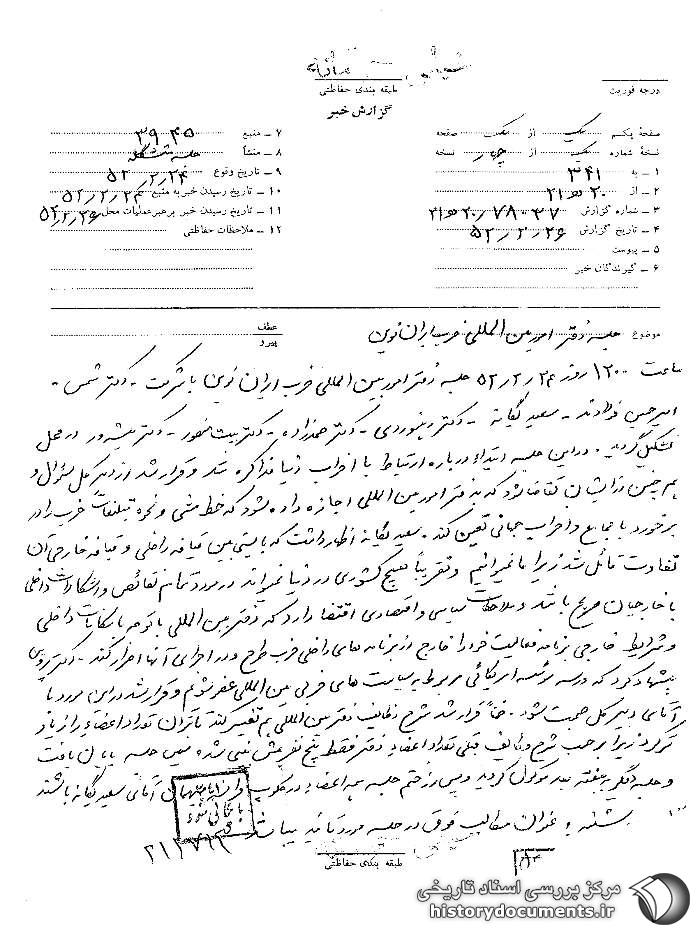 درجه فوریت
طبقه بندی حفاظتی
گزارش خبر
صفحهٔ یکم یک از یک صفحه
نسخهٔ شماره یک از چهار نسخه
۱ ــ به ۳۴۱
۲ ــ از ۲۰ ه ۲۱
۳ ــ شماره گزارش ۲۱ ه ۲۰ / ۷۸۰۳۷
۴ ــ تاریخ گزارش ۵۲/۲/۲۶
۵ ــ پیوست
۶ ــ گیرندگان خبر
۷ ــ منبع ۳۹۴۵
۸ ــ منشأ جلسه متشکله
۹ ــ تاریخ وقوع ۵۲/۲/۲۴
۱۰ ــ تاریخ رسیدن خبر به منبع ۵۲/۲/۲۴
۱۱ ــ تاریخ رسیدن خبر برهبر عملیات محل ۵۲/۲/۲۶
۱۲ ــ ملاحظات حفاظتی
موضوع جلسه دفتر امور بین المللی حزب ایران نوین
عطف
پیرو
ساعت ۱۲۰۰ روز ۵۲/۲/۲۴ جلسه دفتر امور بین المللی حزب ایران نوین با شرکت – دکتر شمس –
امیرحسین فولادوند – سعید یگانه – دکتر دینوری – دکتر – دکتر بیت منصور – دکتر پیشه ور در محل
تشکیل گردید. در این جلسه ابتداء درباره ارتباط با احزاب دنیا مذاکره شد و قرار شد از دبیرکل سئوال و
هم چنین از ایشان تقاضا شود که به دفتر امور بین المللی اجازه داده شود که خط مشی و نحوه تبلیغات حزب را در
برخورد با مجامع و احزاب جهانی تعیین کند. سعید یگانه اظهار داشت که بایستی بین قیافه داخلی و قیافه خارجی آن
تفاوت قائل شد زیرا ما نمیتوانیم و تقریباً هیچ کشوری در دنیا نمیتواند در مورد تمام نقائص و اشکالات داخلی
با خارجیان صریح باشد و ملاحظات سیاسی و اقتصادی اقتضا دارد که دفتر بین المللی با توجه بامکانات داخلی
و شرایط خارجی برنامه فعالیت خود را خارج از برنامه های داخلی حزب طرح و در اجرای آنها اصرار کند – دکتر
پیشنهاد کرد که در سه مؤسسه امریکائی مربوط به سیاست های حزبی بین المللی عضو شویم و قرار شد در این مورد با
آقای دبیر کل صحبت شود. ضمناً قرار شد شرح وظایف دفتر بین المللی هم تغییر کند تا بتوان تعداد اعضاء را زیاد
کرد زیرا برحسب شرح وظایف قبلی تعداد اعضاء دفتر فقط پنج نفر پیش بینی شده سپس جلسه پایان یافت
و جلسه دیگر بهفته بعد موکول گردید و پس از ختم جلسه همه اعضاء در کلوب آقای سعید یگانه باشند
شنبه و عنوان مطالب فوق در جلسه مورد تائید میباشد
بایگانی شود
طبقه بندی حفاظتی
مرکز بررسی اسناد تاریخی
historydocuments.ir